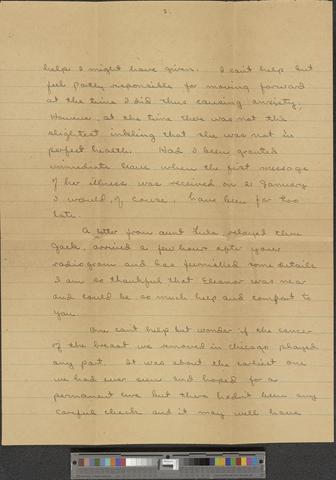 2.
help I might have given. I can't help but
feel partly responsible for moving forward
at the time I did thus causing anxiety.
However, at the time there was not the
slightest inkling that she was not in
perfect health. Had I been granted
immediate leave when the first message
of her illness was received on 21 January
I would, of course, have been far too
late.
A letter from aunt Lula, relayed thru
Jack, arrived a few hours after your
radiogram and has furnished some details
I am so thankful that Eleanor was near
and could be so much help and comfort to
you.
One can't help but wonder if the cancer
of the breast we removed in Chicago played
any part. It was about the earliest one
we had ever seen and hoped for a
permanent cure but there hadn't been any
careful check and it may well have